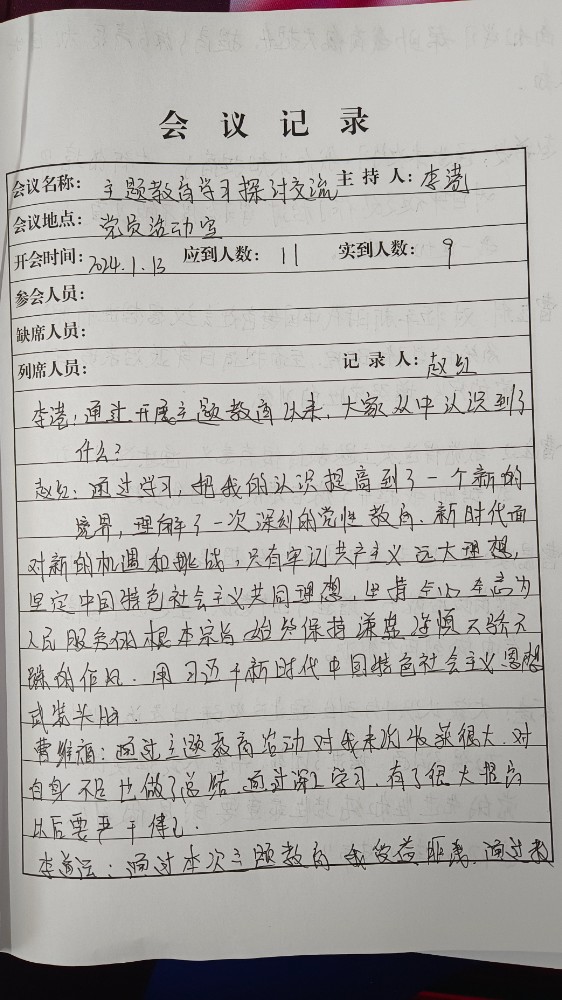 会议记录
会议名称: 主题教育学习探讨交流 主持人: 李港
会议地点: 党员活动室
开会时间: 2024.1.13 应到人数: 11 实到人数: 9
参会人员:
缺席人员:
列席人员: 记录人: 赵红
李港: 通过开展主题教育以来, 大家从中认识到了
什么?
赵红: 通过学习, 把我的认识提高到了一个新的
境界, 理解了一次深刻的党性教育. 新时代面
对新的机遇和挑战, 只有牢记共产主义远大理想,
坚定中国特色社会主义共同理想, 坚持全心全意为
人民服务的根本宗旨 始终保持谦虚谨慎不骄不
躁的作风. 用习近平新时代中国特色社会主义思想
武装头脑.
曹维福: 通过主题教育活动对我来的收获很大. 对
自身不足也做了总结 通过深入学习, 有了很大提高
以后要严于律己.
李 : 通过本次主题教育 我受益 通过教